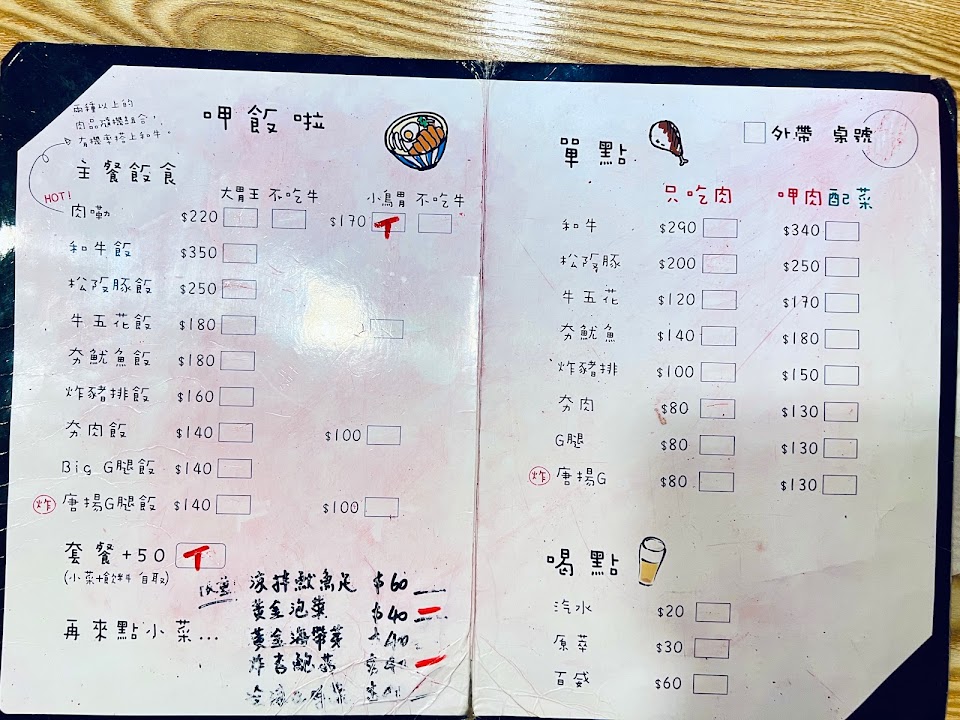 兩種以上的
肉品隨機組合，
有機率搭上和牛。
呷飯啦
主餐飯食
HOT!
大胃王 不吃牛 小鳥胃 不吃牛
肉嘞 $220 $170
和牛飯 $350
松阪豚飯 $250
牛五花飯 $180
夯魷魚飯 $180
炸豬排飯 $160
夯肉飯 $140 $100
Big G腿飯 $140
炸 唐揚G腿飯 $140 $100
套餐+50
(小菜+飲料 自取)
再來點小菜...
魷魚足 $60
黃金泡菜 $40
黃金海帶芽
炸杏鮑菇
單點
外帶 桌號
只吃肉 呷肉配菜
和牛 $290 $340
松阪豚 $200 $250
牛五花 $120 $170
夯魷魚 $140 $180
炸豬排 $100 $150
夯肉 $80 $130
G腿 $80 $130
炸 唐揚G $80 $130
喝點
汽水 $20
原萃 $30
百威 $60